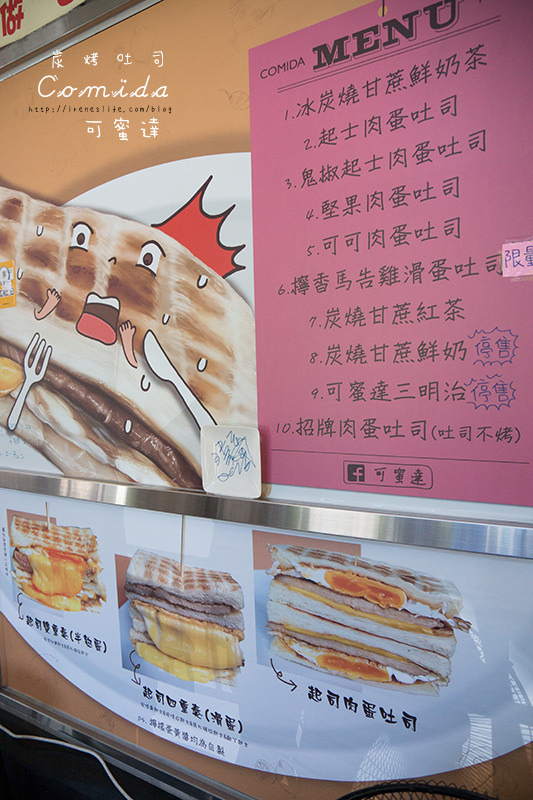 炭烤吐司
Comida
http://ireneslife.com/blog
可蜜達
COMIDA MENU
1.冰炭燒甘蔗鮮奶茶
2.起士肉蛋吐司
3.鬼椒起士肉蛋吐司
4.堅果肉蛋吐司
5.可可肉蛋吐司
6.檸香馬告雞滑蛋吐司
限量
7.炭燒甘蔗紅茶
8.炭燒甘蔗鮮奶 停售
9.可蜜達三明治 停售
10.招牌肉蛋吐司(吐司不烤)
f 可蜜達
起司雙重奏(半熟蛋)
起司四重奏(滑蛋)
ps.檸檬蛋黃醬均為自製
起司肉蛋吐司